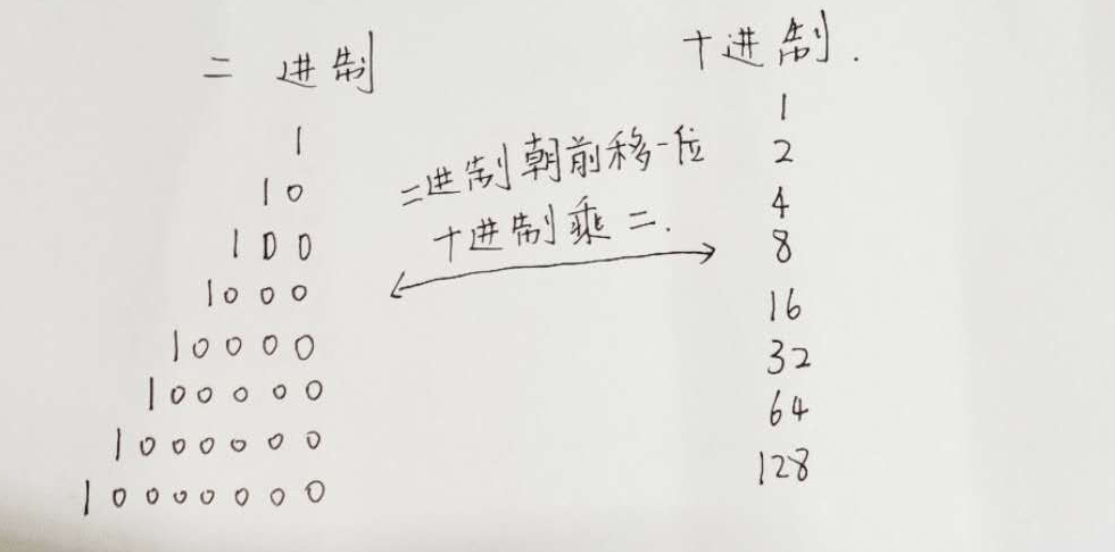 二进制
1
10
100
1000
10000
100000
1000000
10000000
二进制朝前移一位
十进制乘二.
十进制.
1
2
4
8
16
32
64
128